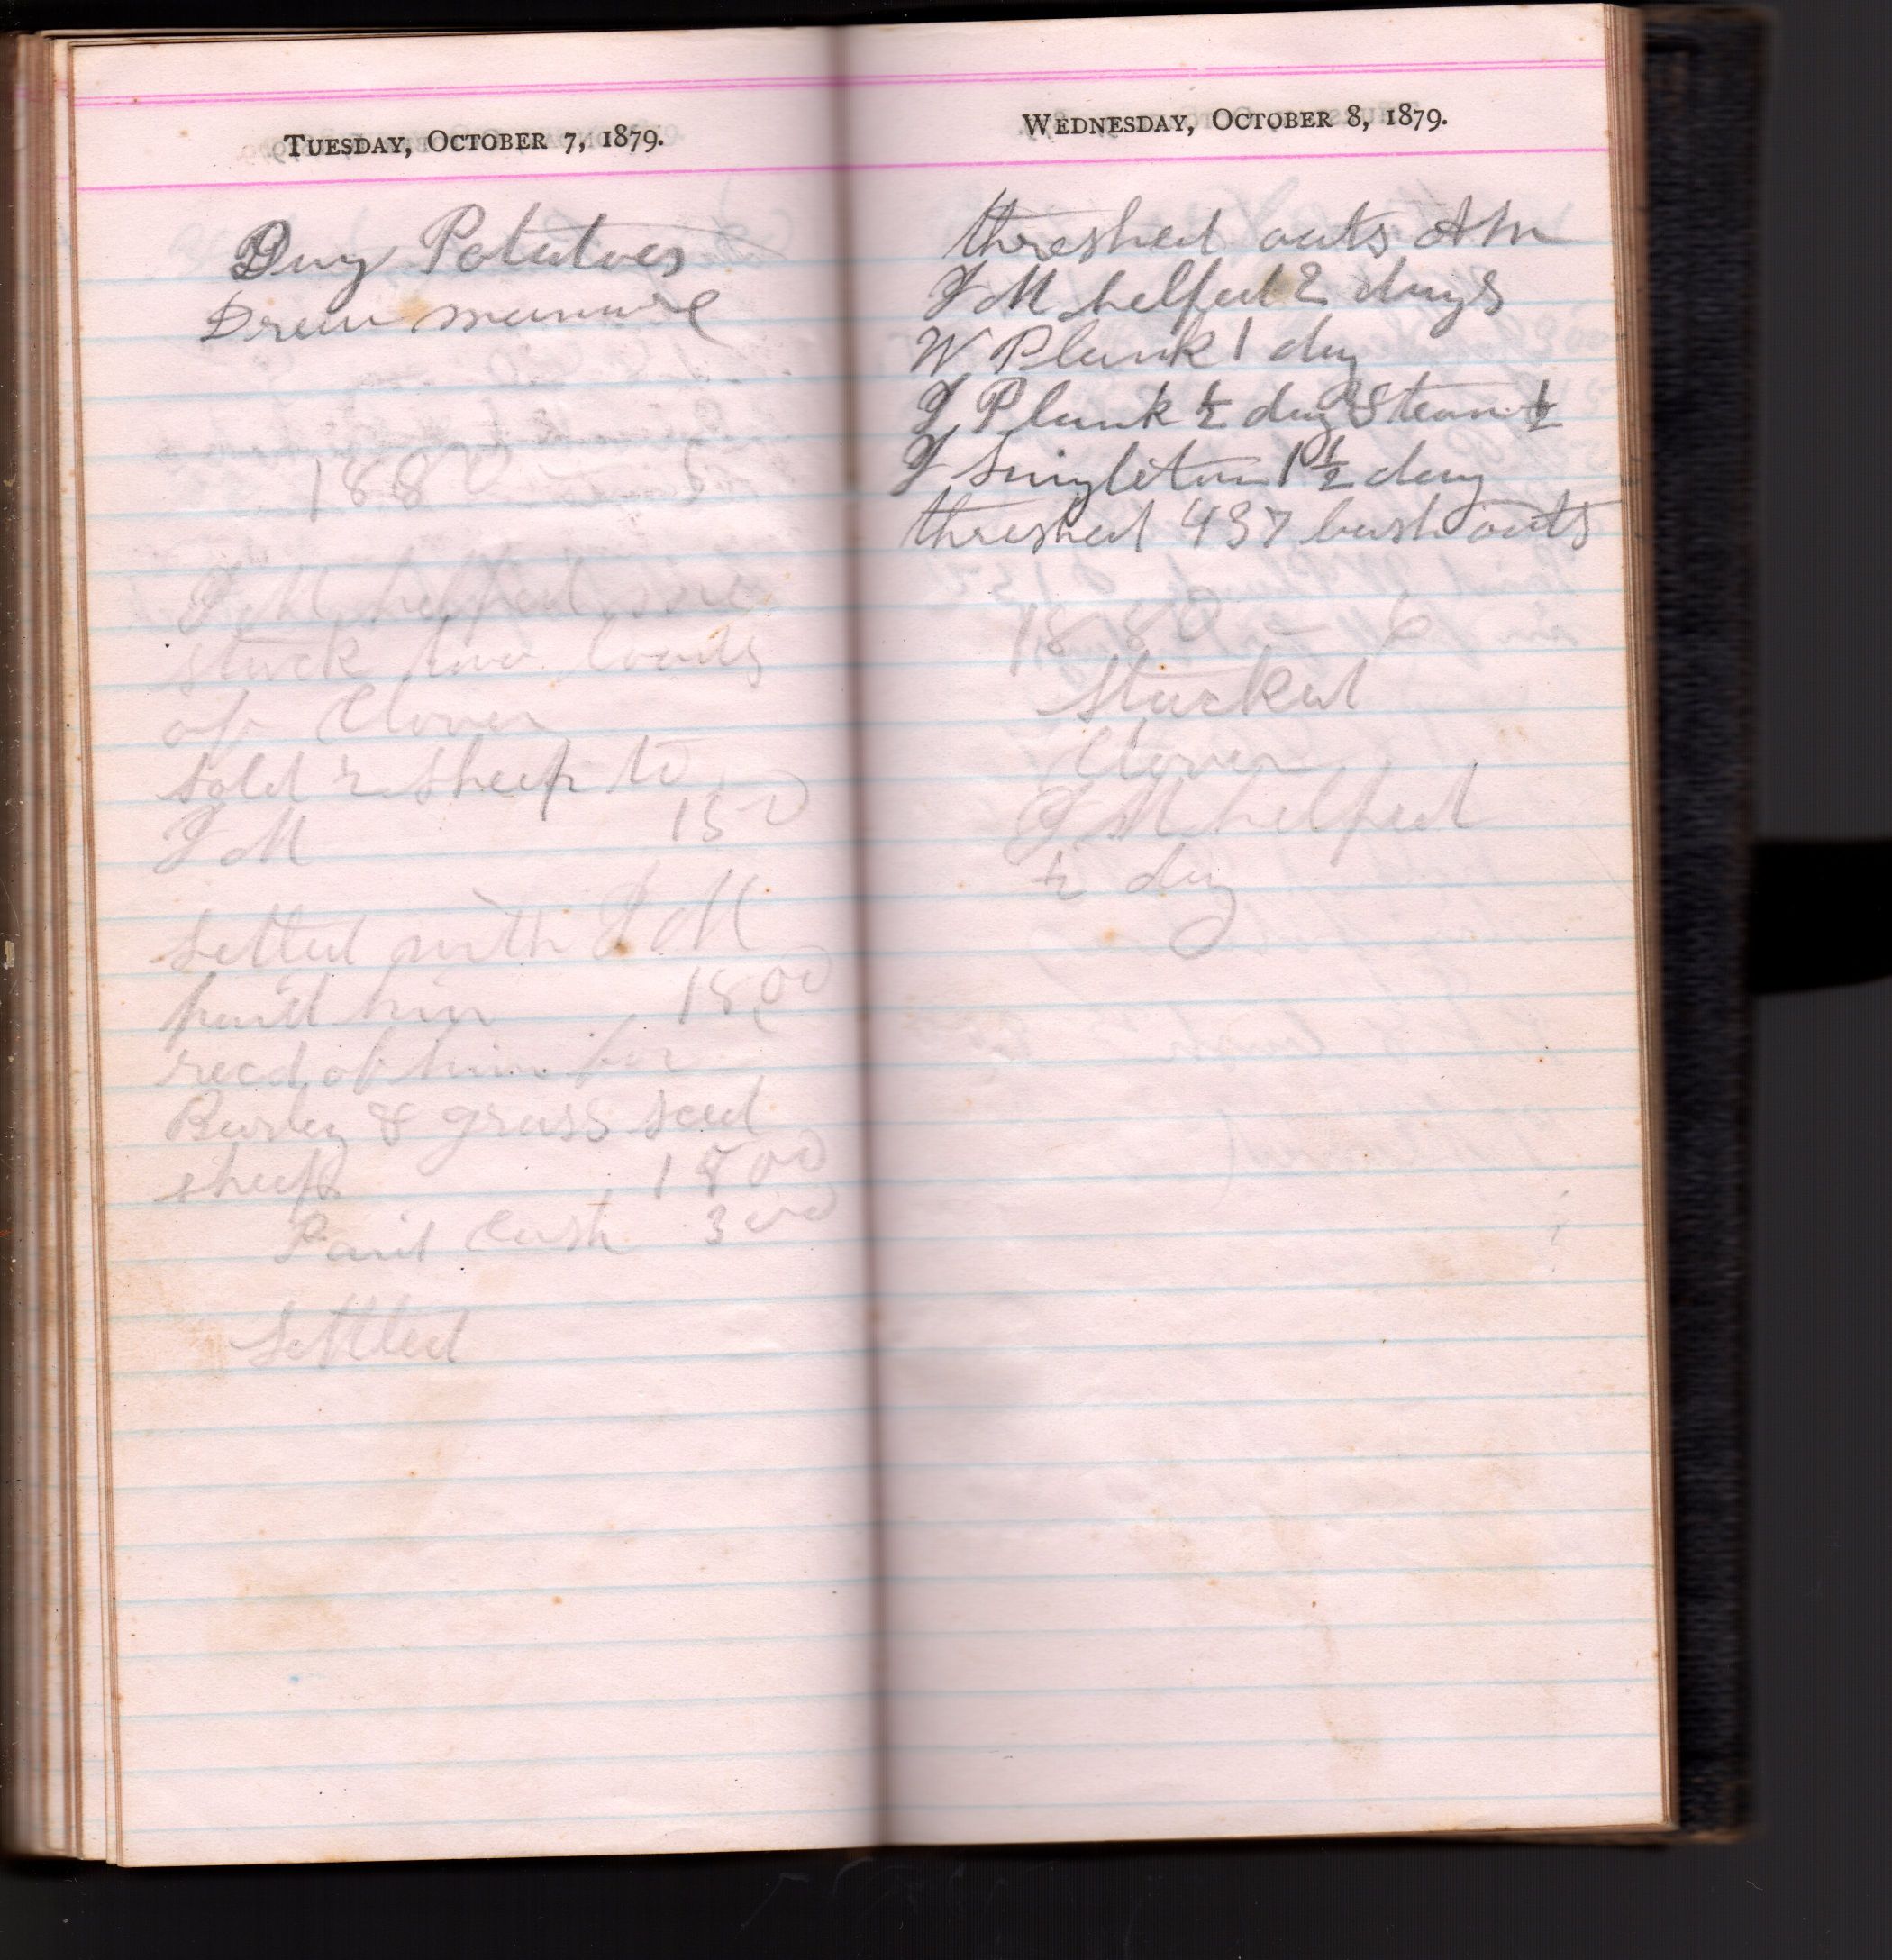 TUESDAY, OCTOBER 7, 1879.
Dug Potatoes
Drew manure
1880
J M helped
stack two loads
of Clover
sold 2 sheep to
J M 150
settled with J M
paid him 18 00
recd of him for
Barley & grass seed
sheep 1800
Paid Cash 300
settled
WEDNESDAY, OCTOBER 8, 1879.
threshed oats
J M helped 2 days
W Plank 1 day
J Plank ½ day Steam ½
J Singleton 1 ½ day
threshed 437 bush oats
1880
Stacked
Clover
J M helped
½ day